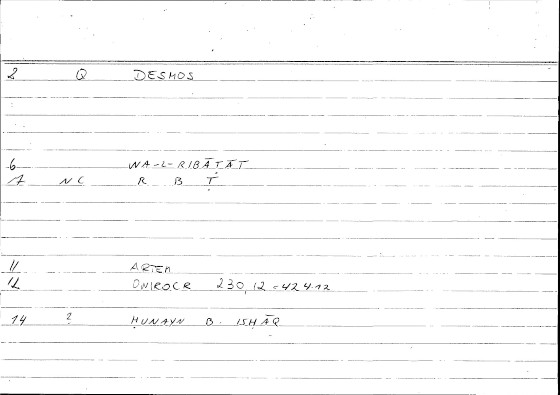 2 Q DESMOS
6 WA-L-RIBĀṬĀT
7 NC R B Ṭ
11 ARTEM
12 ONIROCR 230,12 = 424.12
14 ? ḤUNAYN B. ISḤĀQ